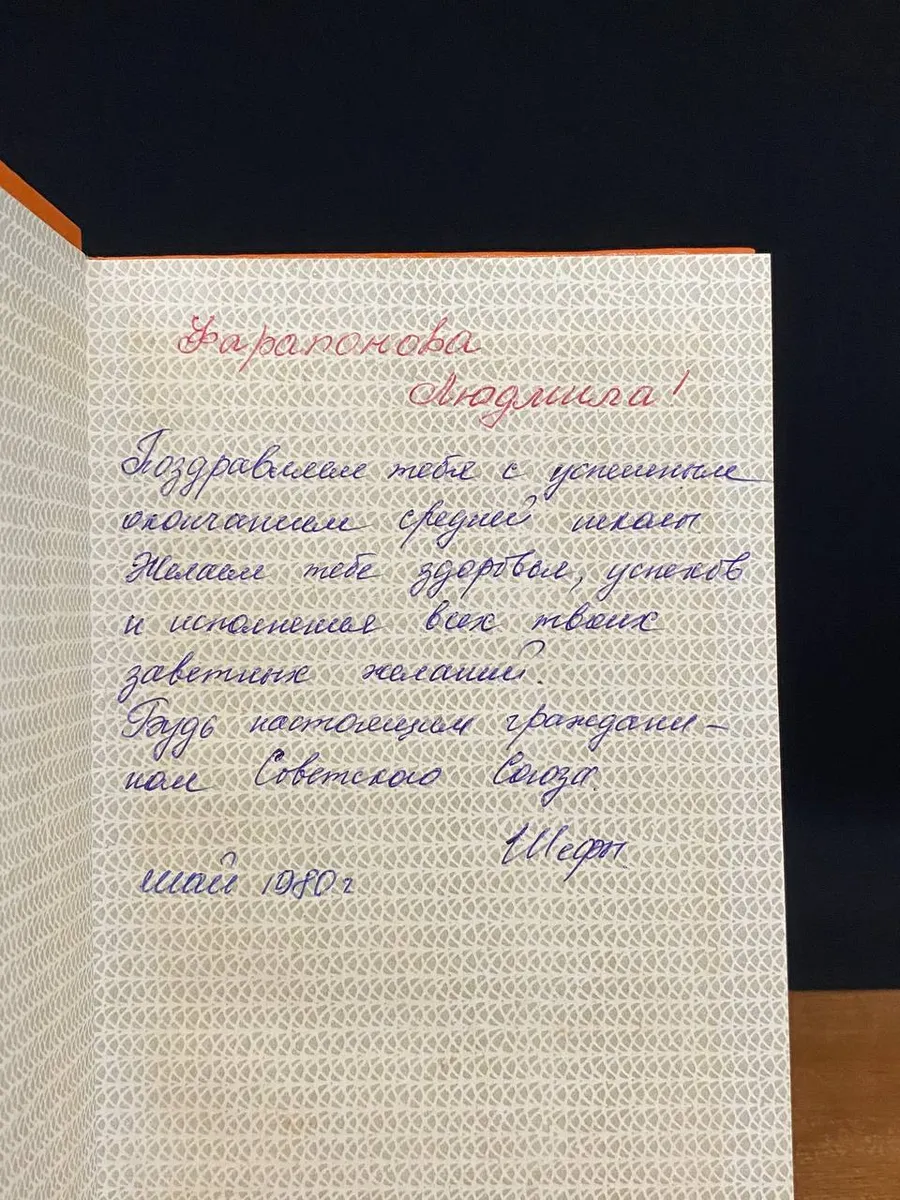 Фарапонова
Людмила!
Поздравляем тебя с успешным
окончанием средней школы
Желаем тебе здоровья, успехов
и исполнения всех твоих
заветных желаний.
Будь настоящим граждани-
ном Советского Союза.
Шефы
май 1980 г